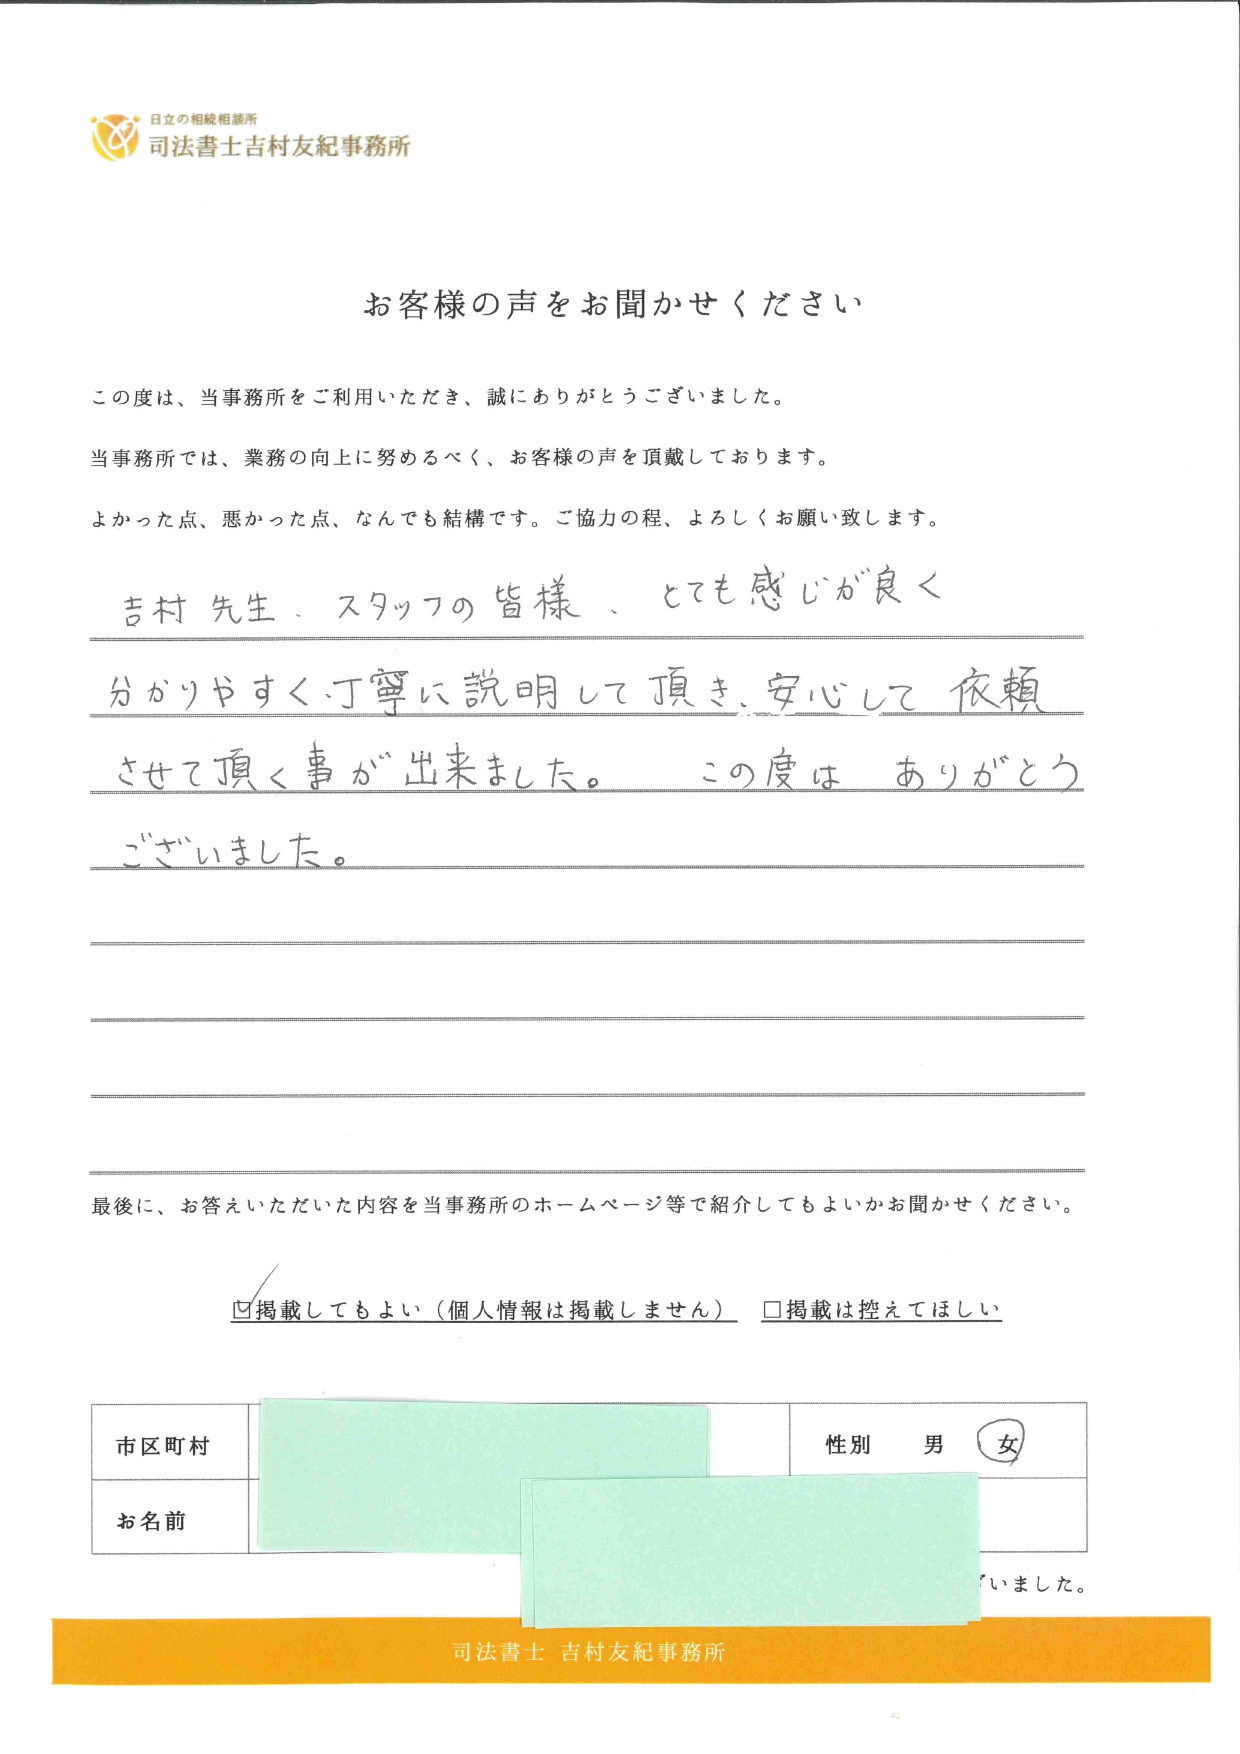 日立の相続相談所
司法書士吉村友紀事務所
お客様の声をお聞かせください
この度は、当事務所をご利用いただき、誠にありがとうございました。
当事務所では、業務の向上に努めるべく、お客様の声を頂戴しております。
よかった点、悪かった点、なんでも結構です。ご協力の程、よろしくお願い致します。
吉村 先生、スタッフの皆様、とても感じが良く
分かりやすく、丁寧に説明して頂き、安心して 依頼
させて頂く事が出来ました。 この度は ありがとう
ございました。
最後に、お答えいただいた内容を当事務所のホームページ等で紹介してもよいかお聞かせください。
☑掲載してもよい（個人情報は掲載しません） □掲載は控えてほしい
市区町村 性別 男 女
お名前
いました。
司法書士 吉村友紀事務所